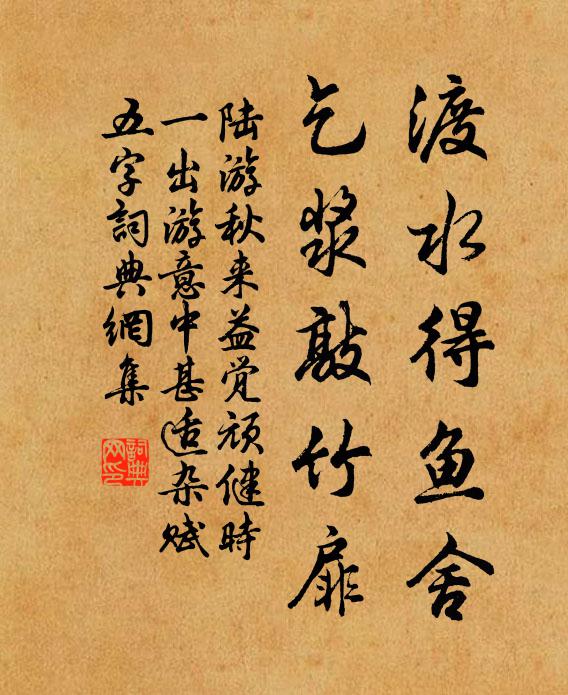 渡水得鱼舍
乞浆敲竹扉
陆游秋来益觉顽健时
一出游意中甚适杂赋
五字詞典網集
詞典网印